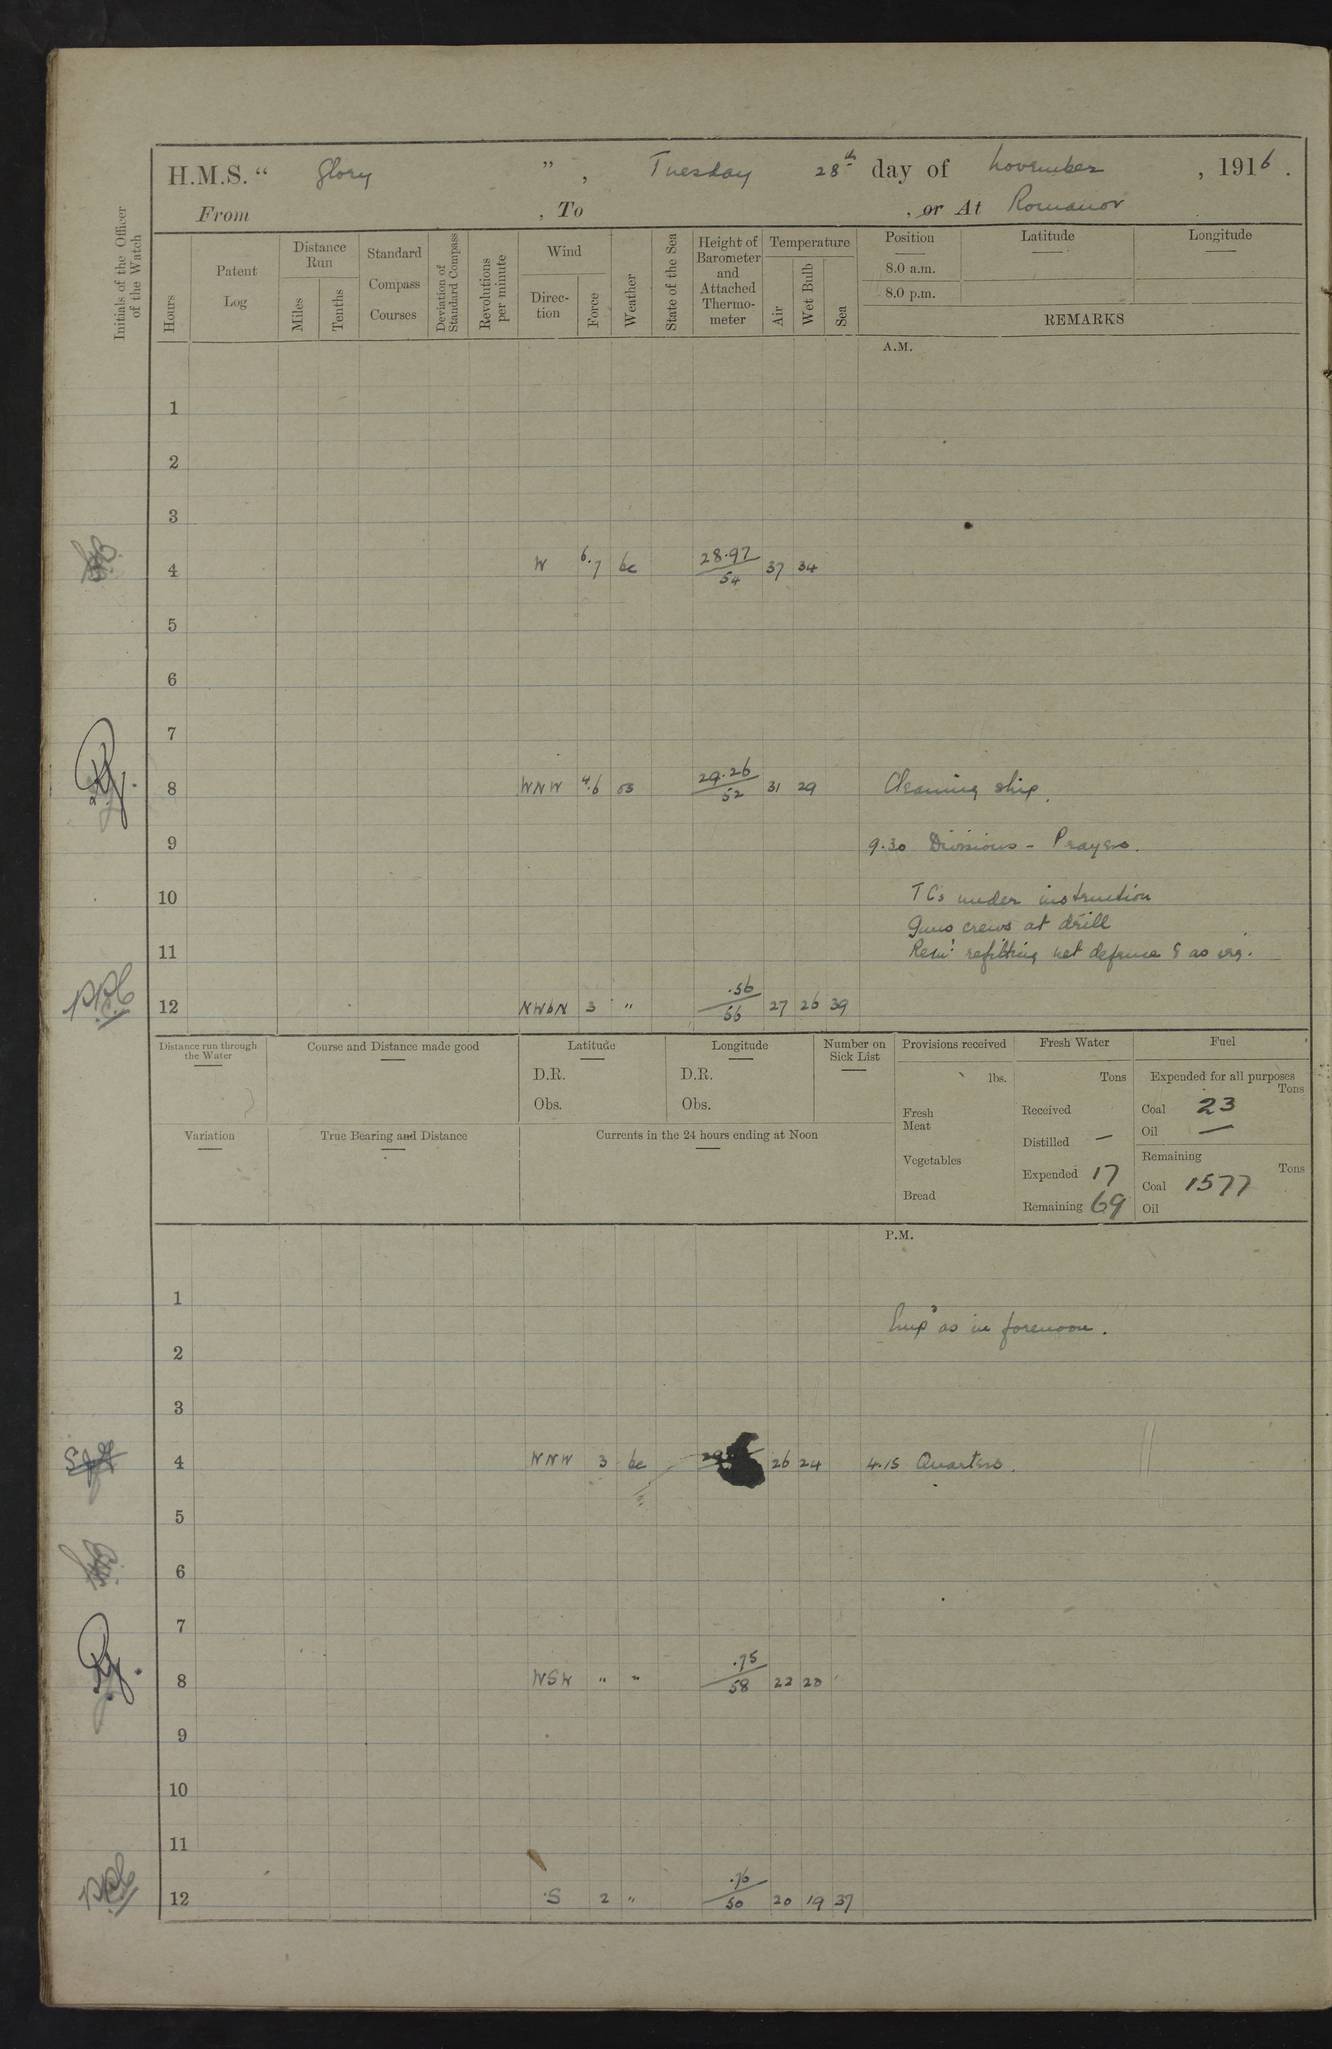 H.M.S. “ Glory ”, Tuesday 28th day of November, 1916.
From , To , or At Romanov
Initials of the Officer of the Watch
Hours
Patent Log
Distance Run
Miles
Tenths
Standard Compass Courses
Deviation of Standard Compass
Revolutions per minute
Wind
Direc-tion
Force
Weather
State of the Sea
Height of Barometer and Attached Thermo-meter
Temperature
Air
Wet Bulb
Sea
Position
8.0 a.m.
8.0 p.m.
Latitude
Longitude
REMARKS
A.M.
1
2
3
4 W 6.7 bc 28.97/54 37 34
5
6
7
8 WNW 4.6 os 29.26/52 31 29 Cleaning ship.
9 9.30 Divisions - Prayers.
10 TCs under instruction
Guns crews at drill
11 refitting net defence & as req.
12 NWbN 3 " .56/56 27 26 39
Distance run through the Water
Course and Distance made good
Latitude
D.R.
Obs.
Longitude
D.R.
Obs.
Number on Sick List
Provisions received
lbs.
Fresh Meat
Vegetables
Bread
Fresh Water
Tons
Received
Distilled —
Expended 17
Remaining 69
Fuel
Expended for all purposes
Tons
Coal 23
Oil —
Remaining
Tons
Coal 1577
Oil
Variation
True Bearing and Distance
Currents in the 24 hours ending at Noon
P.M.
1
as in forenoon.
2
3
4 WNW 3 bc 26 24 4.15 Quarters.
5
6
7
8 WSW " " .75/58 22 20
9
10
11
12 S 2 " .76/50 20 19 37